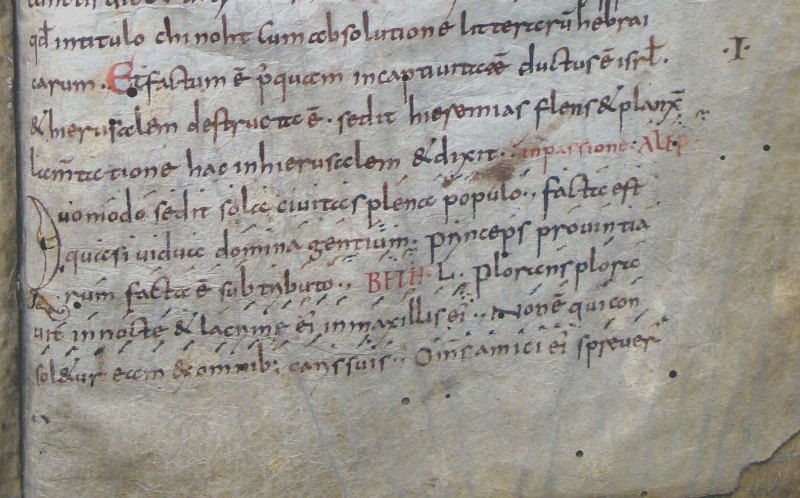 qđ intitulo chinoht Cum absolutione litterarū hebrai
carum. Et factum ē p̄quam incaptiuitatē ductus ē isrl̄. ·I·
& hierusalem destructa ē. sedit hieremias flens & planx̄
lam̄tatione hac inhierusalem & dixit. inpassione. ALEP
Quomodo sedit sola ciuitas plena populo. facta est
quasi uidua domina gentium. princeps prouintia
rum facta ē sub tributo. BETH. L. Plorans plora
uit innocte & lacrime ei inmaxillis ei. Non ē qui con
sol&ur eam exomnib; caris suis. Om̄s amici ei spreuer̄